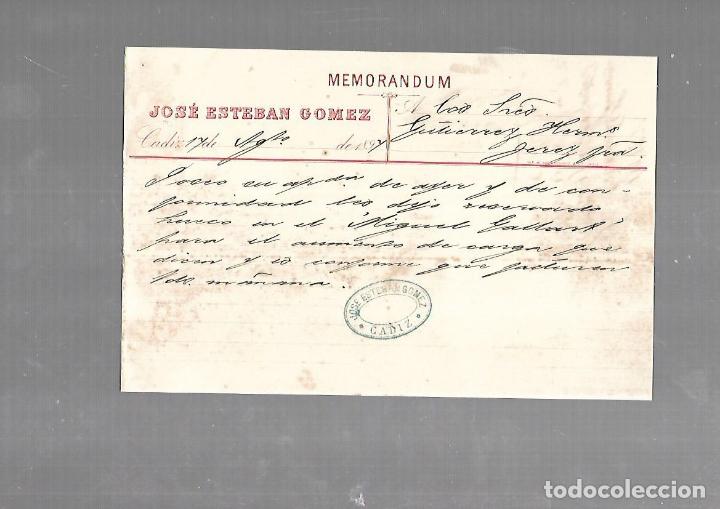 MEMORANDUM
JOSÉ ESTEBAN GOMEZ
Cadiz 17 de Agto. de 1897
A los Sres
Gutierrez Herms.
Jerez fra.
Poseo su apda. de ayer y de con-
formidad les dejo reservado
hueco en el "Miguel Gallart"
para el aumento de carga que
dicen y es conforme que facturen
lo mañana.
JOSÉ ESTEBAN GOMEZ
CADIZ
todocoleccion.net